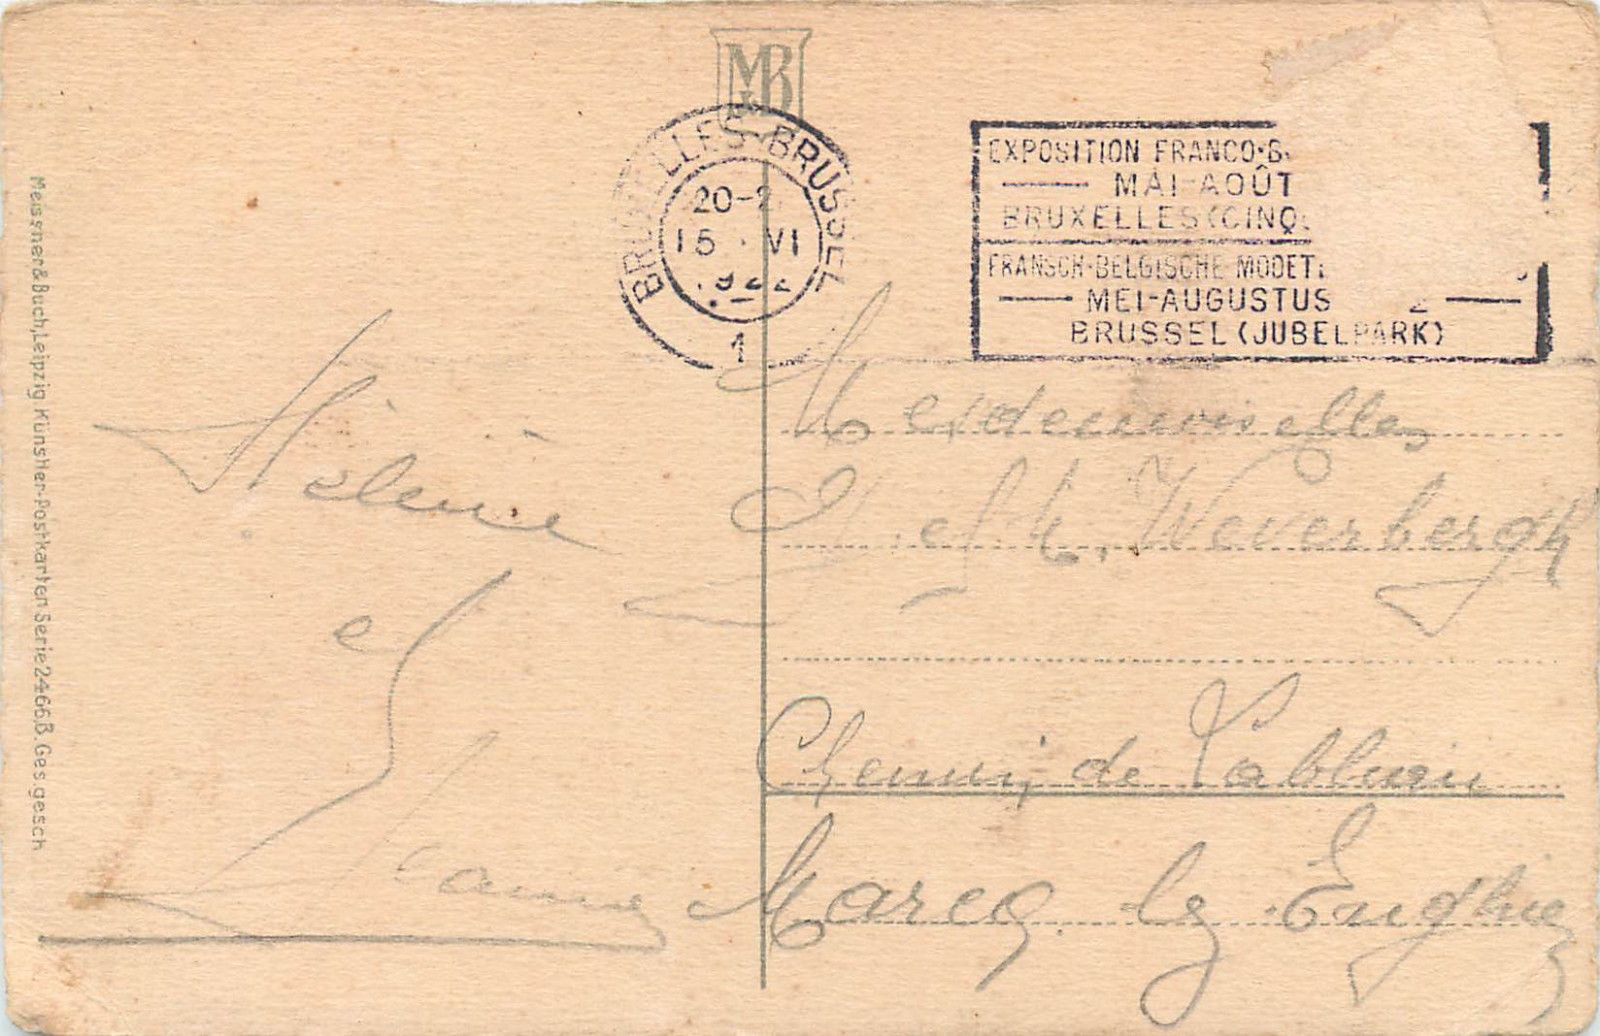 M&B
BRUXELLES-BRUSSEL
20-2
15 VI
1922
1
EXPOSITION FRANCO-B
MAI-AOÛT
BRUXELLES (CINQ
FRANSCH-BELGISCHE MODET
MEI-AUGUSTUS 2
BRUSSEL (JUBELPARK)
Meissner & Buch, Leipzig Künstler-Postkarten Serie 2466B. Ges gesch
Hélène
et
Jeanne
Mesdemoiselles
Y. et L. Weverbergh
Chemin de
Marcq lez Enghien